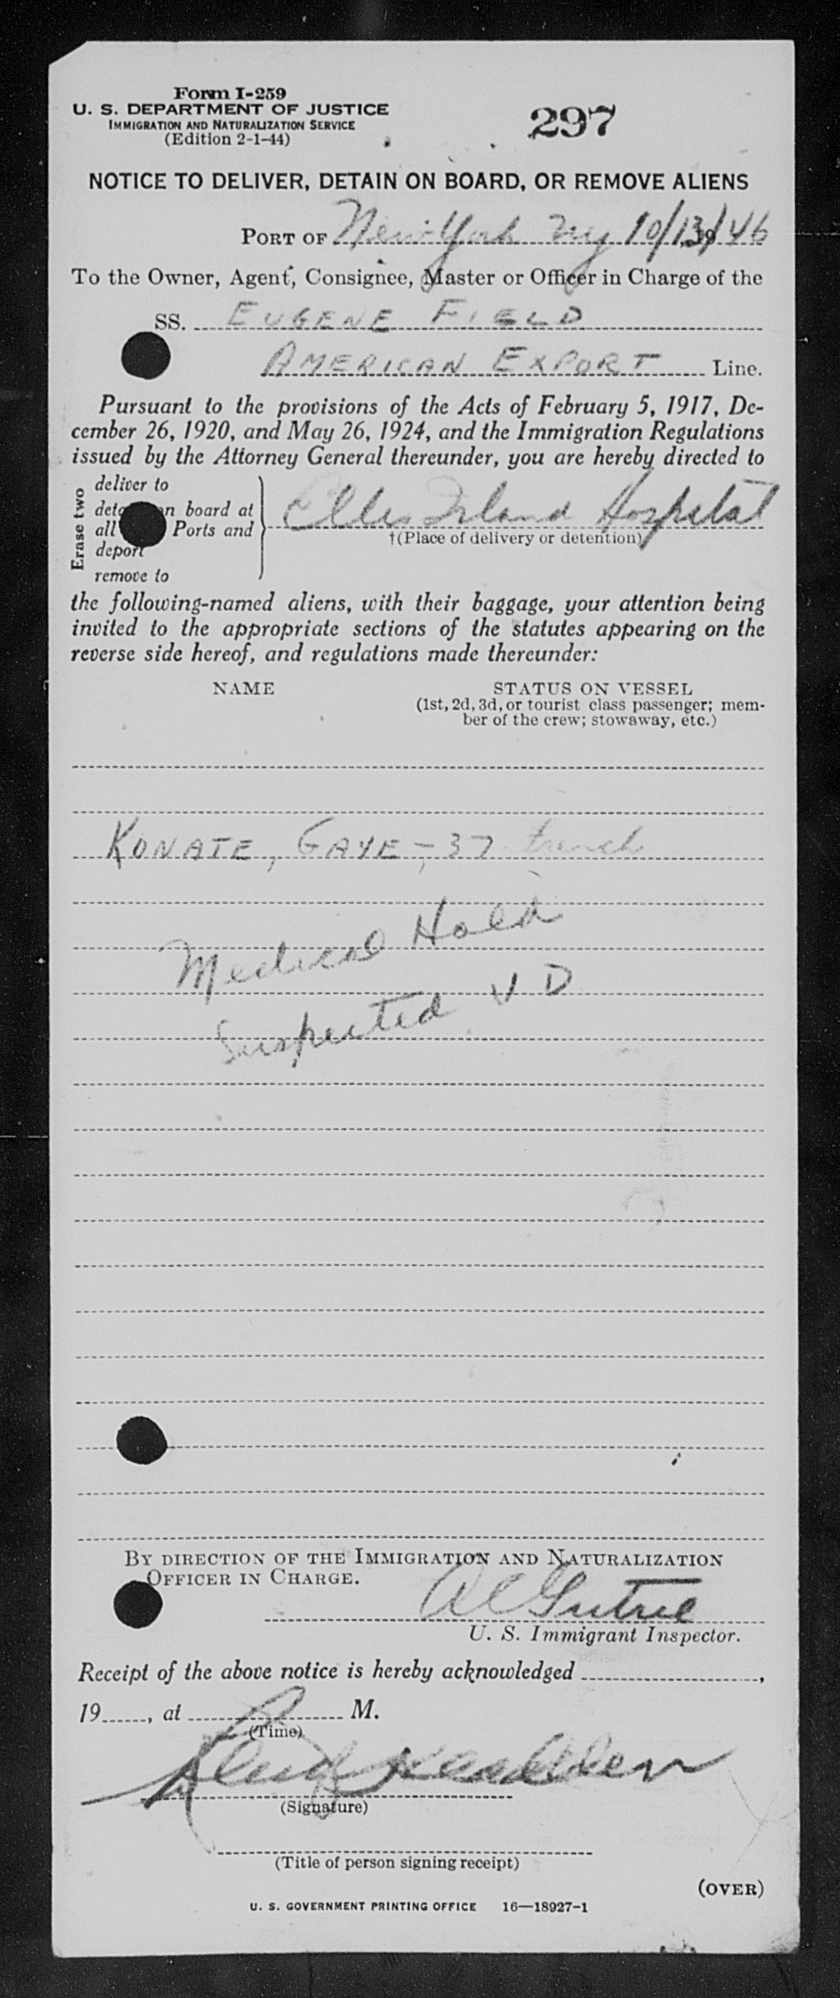 Form I-259
U. S. DEPARTMENT OF JUSTICE
IMMIGRATION AND NATURALIZATION SERVICE
(Edition 2-1-44)
297
NOTICE TO DELIVER, DETAIN ON BOARD, OR REMOVE ALIENS
PORT OF New York NY 10/13/46
To the Owner, Agent, Consignee, Master or Officer in Charge of the
SS. EUGENE FIELD
AMERICAN EXPORT Line.
Pursuant to the provisions of the Acts of February 5, 1917, De-
cember 26, 1920, and May 26, 1924, and the Immigration Regulations
issued by the Attorney General thereunder, you are hereby directed to
Erase two
deliver to
on board at
all Ports and
deport
remove to
Ellis Island Hospital
†(Place of delivery or detention)
the following-named aliens, with their baggage, your attention being
invited to the appropriate sections of the statutes appearing on the
reverse side hereof, and regulations made thereunder:
NAME STATUS ON VESSEL
(1st, 2d, 3d, or tourist class passenger; mem-
ber of the crew; stowaway, etc.)
KONATE, GAYE - 37 french
Medical Hold
Suspected V D
BY DIRECTION OF THE IMMIGRATION AND NATURALIZATION
OFFICER IN CHARGE.
U. S. Immigrant Inspector.
Receipt of the above notice is hereby acknowledged ,
19 , at M.
(Time)
(Signature)
(Title of person signing receipt)
(OVER)
U. S. GOVERNMENT PRINTING OFFICE 16—18927-1